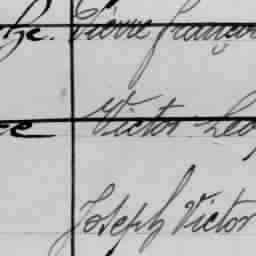 Pierre françois
Victor Leo
Joseph Victor